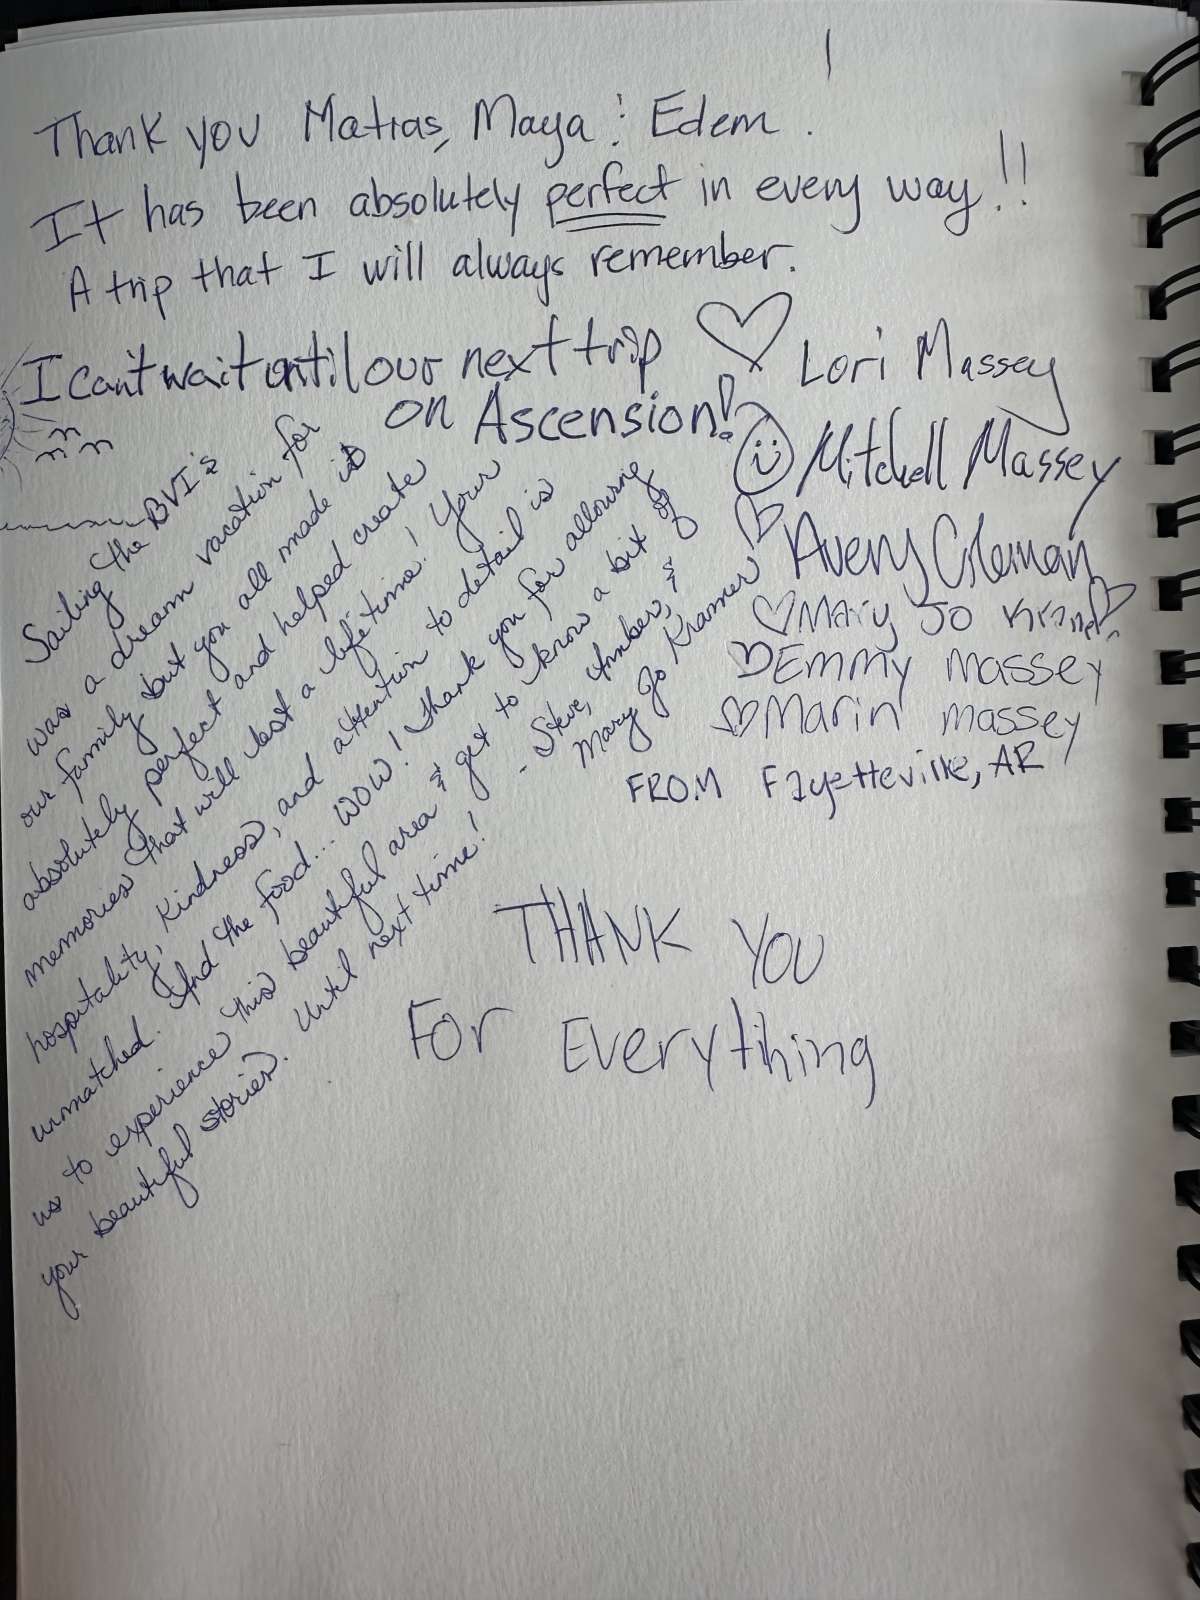 Thank you Matias, Maya & Edem!
It has been absolutely perfect in every way!!
A trip that I will always remember.
I can't wait until our next trip
on Ascension!
Lori Massey
Mitchell Massey
Avery Coleman
Mary Jo Kramer
Emmy Massey
Marin Massey
FROM Fayetteville, AR
Sailing the BVI's
was a dream vacation for
our family but you all made it
absolutely perfect and helped create
memories that will last a lifetime! Your
hospitality, kindness, and attention to detail is
unmatched. And the food... WOW! Thank you for allowing
us to experience this beautiful area & get to know a bit of
your beautiful stories. Until next time!
- Steve, Amber, &
Mary Jo Kramer
THANK YOU
For Everything